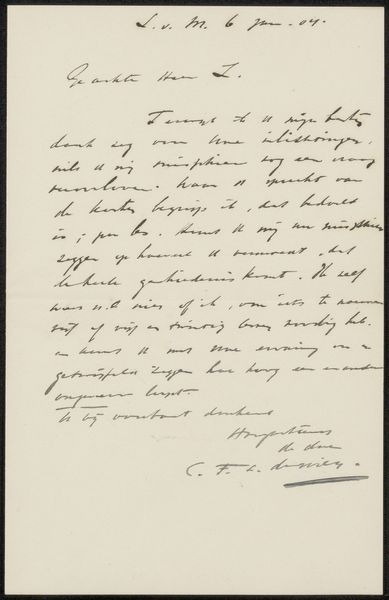 L. v. M. 6 Jan. 04.
Geachte Heer Z.
U mijn
dank zeg voor Uwe inlichtingen,
wilt U mij misschien nog een vraag
veroorloven. Waar U spreekt van
de kosten begrijp ik, dat bedoeld
is; per les. Kunt U mij nu misschien
zeggen op hoeveel U vermoedt, dat
de heele geschiedenis komt. Ik zelf
was n.l. of ik, om iets te noemen
vijf of vijf en twintig lessen noodig heb.
en kunt U met Uwe ervaring
zeggen hoe hoog een en ander
ongeveer loopt.
U bij voorbaat dankend
Hoogachtend
de Uwe
C. F. L. de Wild.